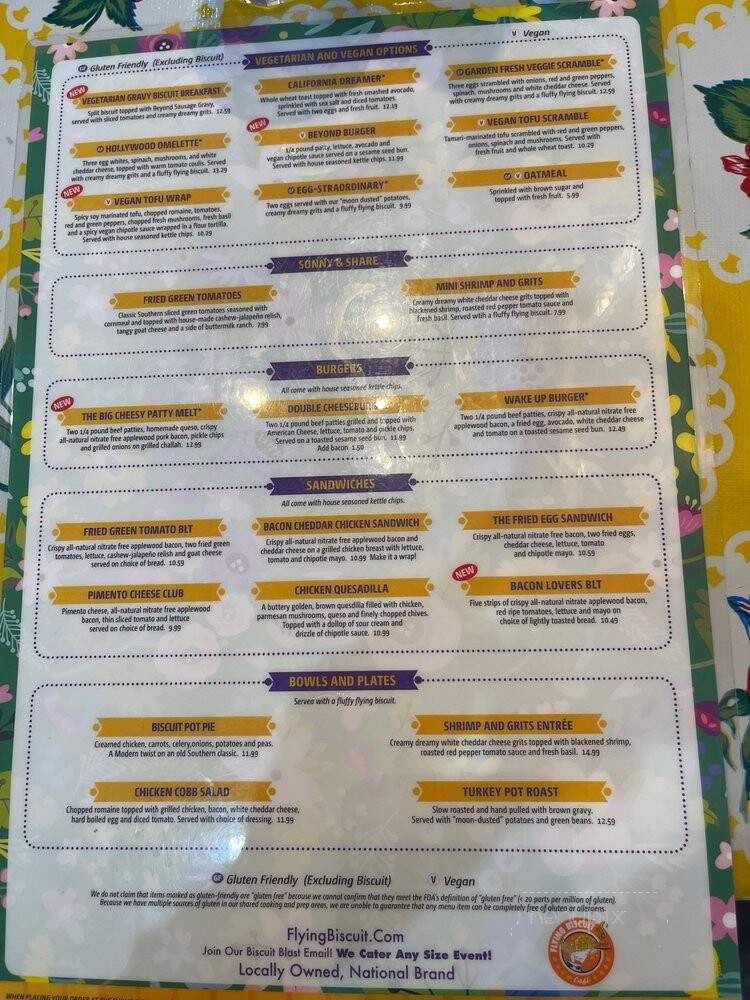 GF Gluten Friendly (Excluding Biscuit)
VEGETARIAN AND VEGAN OPTIONS
V Vegan
NEW
VEGETARIAN GRAVY BISCUIT BREAKFAST
Split biscuit topped with Beyond Sausage Gravy,
served with sliced tomatoes and creamy dreamy grits. 12.59
CALIFORNIA DREAMER*
Whole wheat toast topped with fresh smashed avocado,
sprinkled with sea salt and diced tomatoes.
Served with two eggs and fresh fruit. 12.19
GF GARDEN FRESH VEGGIE SCRAMBLE*
Three eggs scrambled with onions, red and green peppers,
spinach, mushrooms and white cheddar cheese. Served
with creamy dreamy grits and a fluffy flying biscuit. 12.59
GF HOLLYWOOD OMELETTE*
Three egg whites, spinach, mushrooms, and white
cheddar cheese, topped with warm tomato coulis. Served
with creamy dreamy grits and a fluffy flying biscuit. 13.29
NEW
V BEYOND BURGER
1/4 pound patty, lettuce, avocado and
vegan chipotle sauce served on a sesame seed bun.
Served with house seasoned kettle chips. 11.99
V VEGAN TOFU SCRAMBLE
Tamari-marinated tofu scrambled with red and green peppers,
onions, spinach and mushrooms. Served with
fresh fruit and whole wheat toast. 10.29
NEW
V VEGAN TOFU WRAP
Spicy soy marinated tofu, chopped romaine, tomatoes,
red and green peppers, chopped fresh mushrooms, fresh basil
and a spicy vegan chipotle sauce wrapped in a flour tortilla.
Served with house seasoned kettle chips. 10.29
GF EGG-STRAORDINARY*
Two eggs served with our "moon dusted" potatoes,
creamy dreamy grits and a fluffy flying biscuit. 9.99
GF V OATMEAL
Sprinkled with brown sugar and
topped with fresh fruit. 5.99
SONNY & SHARE
FRIED GREEN TOMATOES
Classic Southern sliced green tomatoes seasoned with
cornmeal and topped with house-made cashew-jalapeño relish,
tangy goat cheese and a side of buttermilk ranch. 7.99
MINI SHRIMP AND GRITS
Creamy dreamy white cheddar cheese grits topped with
blackened shrimp, roasted red pepper tomato sauce and
fresh basil. Served with a fluffy flying biscuit. 7.99
BURGERS
All come with house seasoned kettle chips.
NEW
THE BIG CHEESY PATTY MELT*
Two 1/4 pound beef patties, homemade queso, crispy
all-natural nitrate free applewood pork bacon, pickle chips
and grilled onions on grilled challah. 12.99
DOUBLE CHEESEBURGER
Two 1/4 pound beef patties grilled and topped with
American Cheese, lettuce, tomato and pickle chips.
Served on a toasted sesame seed bun. 11.99
Add bacon 1.50
WAKE UP BURGER*
Two 1/4 pound beef patties, crispy all-natural nitrate free
applewood bacon, a fried egg, avocado, white cheddar cheese
and tomato on a toasted sesame seed bun. 12.49
SANDWICHES
All come with house seasoned kettle chips.
FRIED GREEN TOMATO BLT
Crispy all-natural nitrate free applewood bacon, two fried green
tomatoes, lettuce, cashew-jalapeño relish and goat cheese
served on choice of bread. 10.59
BACON CHEDDAR CHICKEN SANDWICH
Crispy all-natural nitrate free applewood bacon and
cheddar cheese on a grilled chicken breast with lettuce,
tomato and chipotle mayo. 10.99 Make it a wrap!
THE FRIED EGG SANDWICH
Crispy all-natural nitrate free bacon, two fried eggs,
cheddar cheese, lettuce, tomato
and chipotle mayo. 10.59
PIMENTO CHEESE CLUB
Pimento cheese, all-natural nitrate free applewood
bacon, thin sliced tomato and lettuce
served on choice of bread. 9.99
CHICKEN QUESADILLA
A buttery golden, brown quesadilla filled with chicken,
parmesan mushrooms, queso and finely chopped chives.
Topped with a dollop of sour cream and
drizzle of chipotle sauce. 10.99
NEW
BACON LOVERS BLT
Five strips of crispy all-natural nitrate applewood bacon,
red ripe tomatoes, lettuce and mayo on
choice of lightly toasted bread. 10.49
BOWLS AND PLATES
Served with a fluffy flying biscuit.
BISCUIT POT PIE
Creamed chicken, carrots, celery,onions, potatoes and peas.
A Modern twist on an old Southern classic. 11.99
SHRIMP AND GRITS ENTRÉE
Creamy dreamy white cheddar cheese grits topped with blackened shrimp,
roasted red pepper tomato sauce and fresh basil. 14.99
CHICKEN COBB SALAD
Chopped romaine topped with grilled chicken, bacon, white cheddar cheese,
hard boiled egg and diced tomato. Served with choice of dressing. 11.99
TURKEY POT ROAST
Slow roasted and hand pulled with brown gravy.
Served with "moon-dusted" potatoes and green beans. 12.59
GF Gluten Friendly (Excluding Biscuit) V Vegan
We do not claim that items marked as gluten-friendly are "gluten free" because we cannot confirm that they meet the FDA's definition of "gluten free" (< 20 parts per million of gluten).
Because we have multiple sources of gluten in our shared cooking and prep areas, we are unable to guarantee that any menu item can be completely free of gluten or allergens.
FlyingBiscuit.Com
Join Our Biscuit Blast Email! We Cater Any Size Event!
Locally Owned, National Brand
FLYING BISCUIT
Café
WHEN PLACING YOUR ORDER AT THE